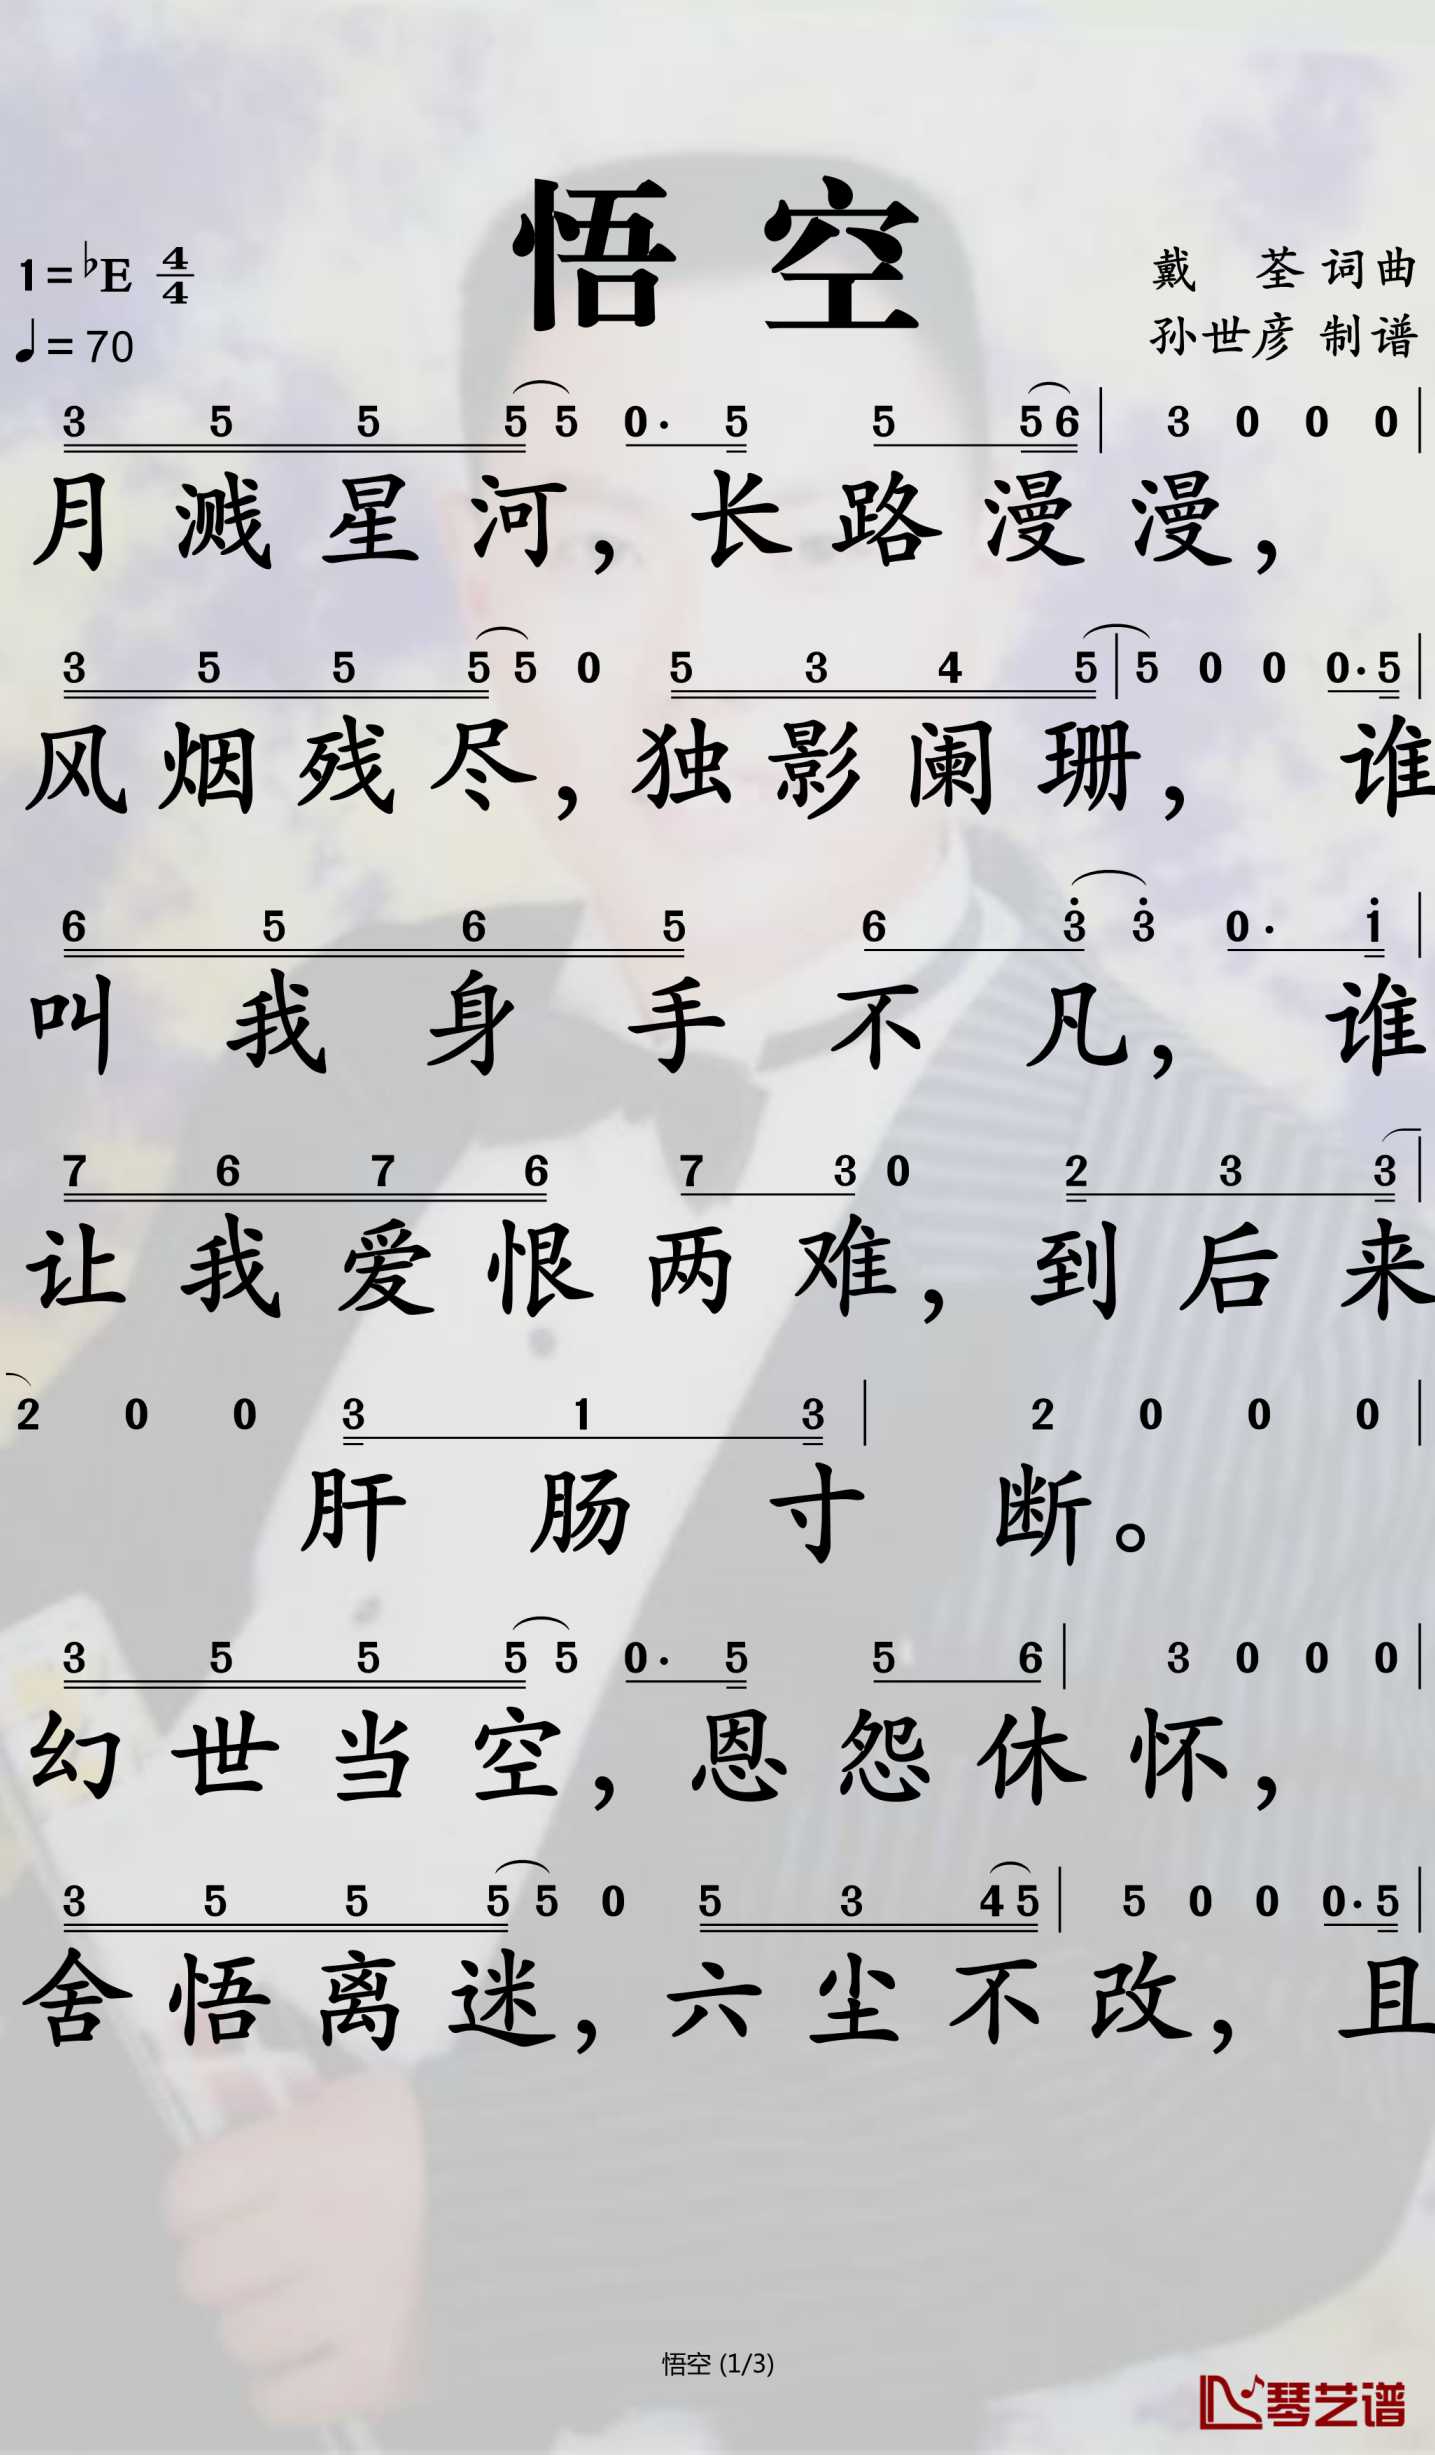 悟 空
1=♭E 4/4
♩=70
戴 荃 词曲
孙世彦 制谱
3 5 5 5 5 0· 5 5 5 6 | 3 0 0 0 |
月 溅 星 河， 长 路 漫 漫，
3 5 5 5 5 0 5 3 4 5 | 5 0 0 0· 5 |
风 烟 残 尽， 独 影 阑 珊， 谁
6 5 6 5 6 3̇ 3̇ 0· 1̇ |
叫 我 身 手 不 凡， 谁
7 6 7 6 7 3 0 2 3 3 |
让 我 爱 恨 两 难， 到 后 来
2 0 0 3 1 3 | 2 0 0 0 |
肝 肠 寸 断。
3 5 5 5 5 0· 5 5 6 | 3 0 0 0 |
幻 世 当 空， 恩 怨 休 怀，
3 5 5 5 5 0 5 3 4 5 | 5 0 0 0· 5 |
舍 悟 离 迷， 六 尘 不 改， 且
悟空 (1/3)
琴艺谱